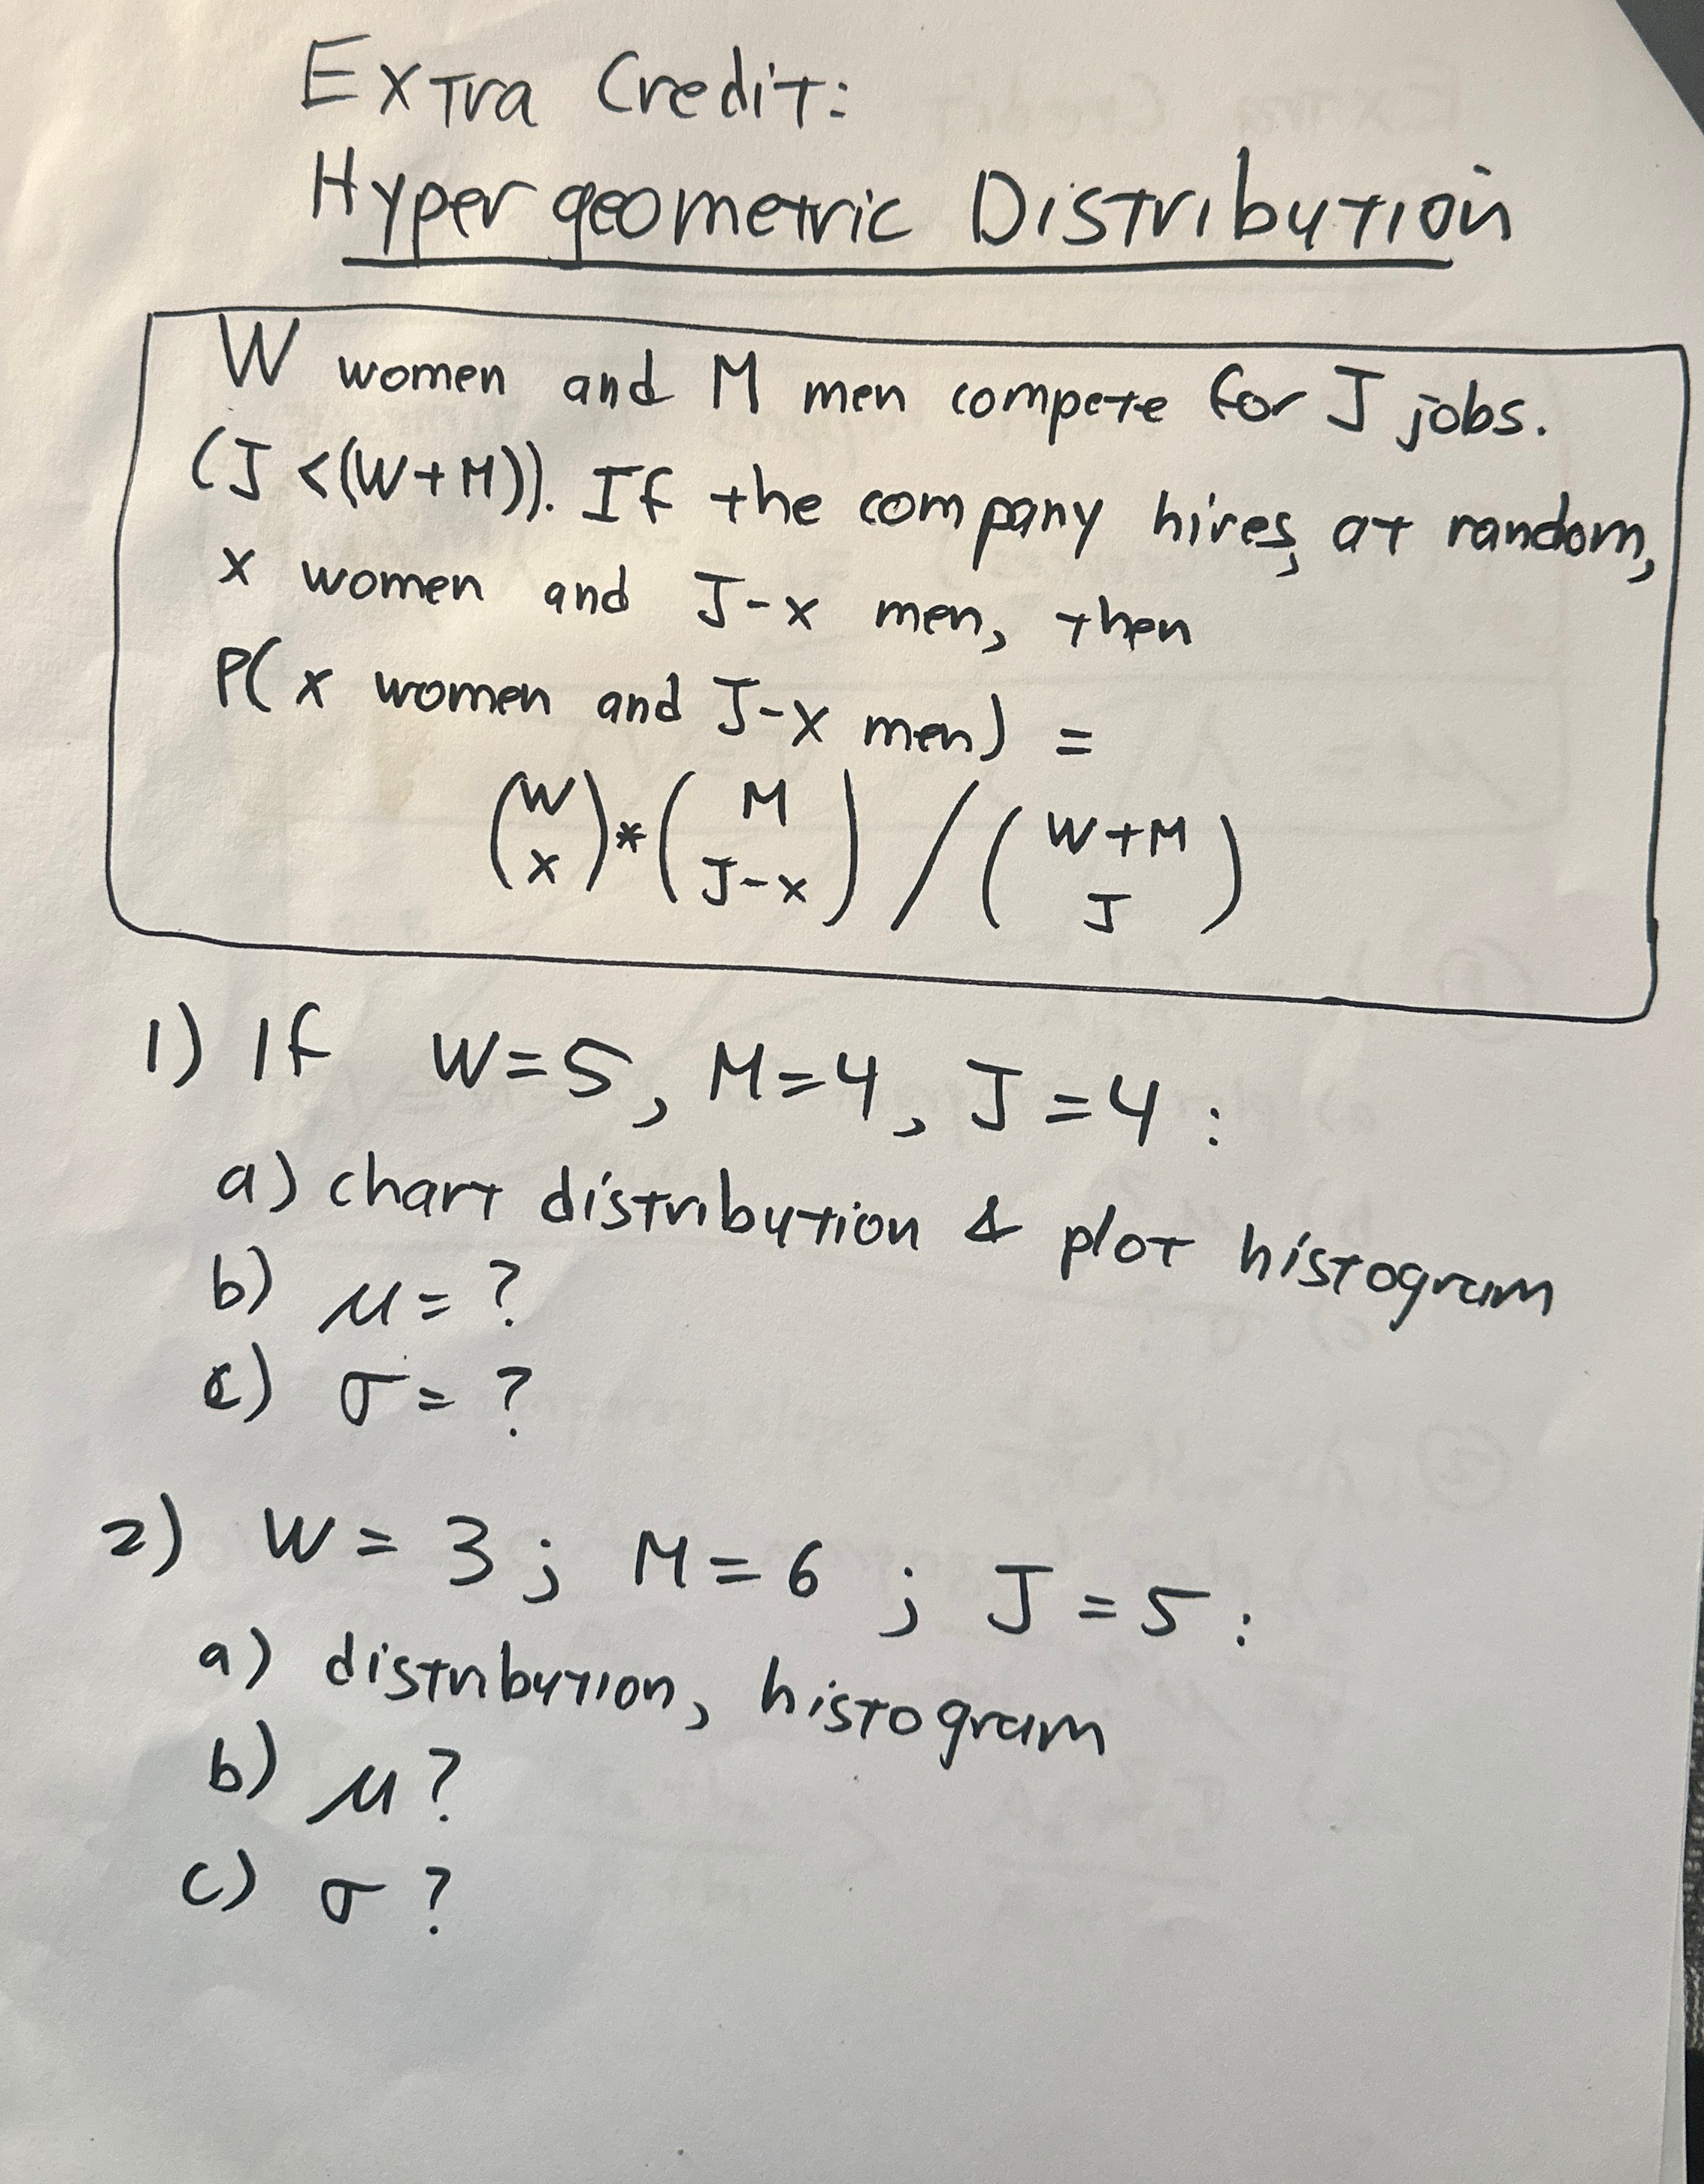 Extra Credit:
Hypergeometric Distribution
W women and M men compete for J jobs.
(J <(W+M)). If the company hires, at random,
x women and J-x men, then
P( x women and J-x men) =
(W x) * (M J-x) / (W+M J)
1) If W=5, M=4, J=4 :
a) chart distribution & plot histogram
b) μ = ?
c) σ = ?
2) W = 3 ; M = 6 ; J = 5 :
a) distribution, histogram
b) μ ?
c) σ ?